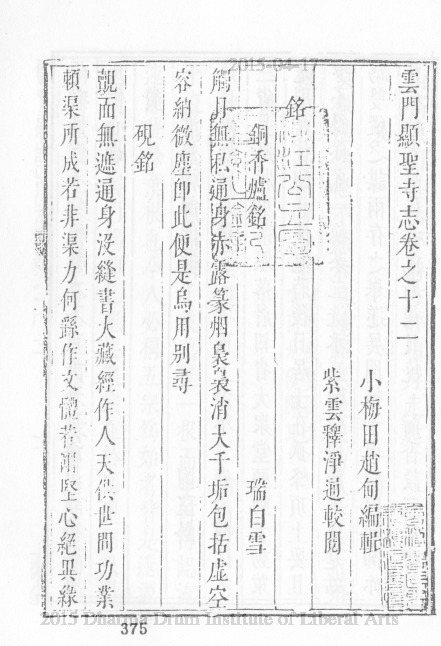 2015-04-17
雲門顯聖寺志卷之十二
小梅田趙甸編輯
紫雲釋淨通較閱
銘
銅香爐銘 瑞白雪
觸目無私通身赤露篆烟裊裊消大千垢包括虛空
容納微塵卽此便是烏用別尋
硯銘
覿面無遮通身沒縫書大藏經作人天供世間功業
頓渠所成若非渠力何繇作文體若 堅心絕異緣
375
2015 Dharma Drum Institute of Liberal Arts